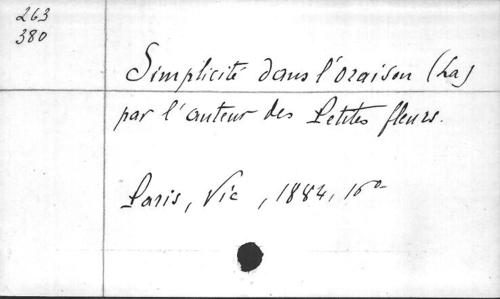 263
380
Simplicité dans l'oraison (La)
par l'auteur des Petites fleurs.
Paris, Vic, 1884, 16°